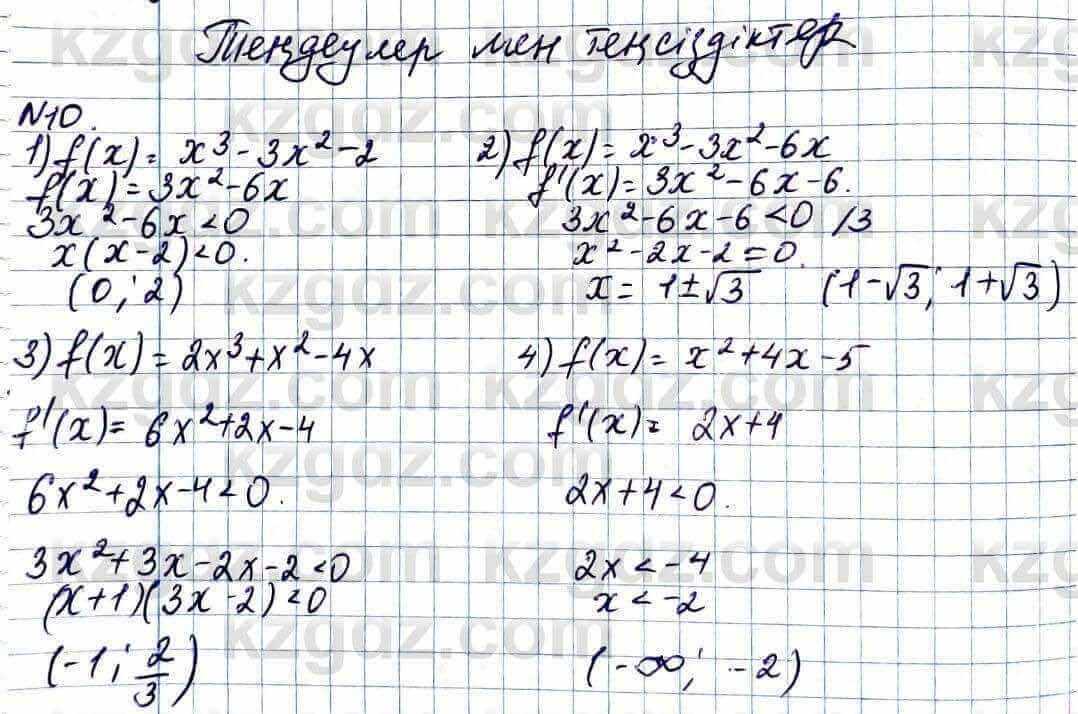 Теңдеулер мен теңсіздіктер
N10.
1) f(x) = x³ - 3x² - 2
f(x) = 3x² - 6x
3x² - 6x < 0
x(x - 2) < 0.
(0; 2)
2) f(x) = x³ - 3x² - 6x
f'(x) = 3x² - 6x - 6.
3x² - 6x - 6 < 0 /3
x² - 2x - 2 = 0.
x = 1 ± √3 (1 - √3; 1 + √3)
3) f(x) = 2x³ + x² - 4x
f'(x) = 6x² + 2x - 4
6x² + 2x - 4 < 0.
3x² + 3x - 2x - 2 < 0
(x + 1)(3x - 2) < 0
(-1; 2/3)
4) f(x) = x² + 4x - 5
f'(x) = 2x + 4
2x + 4 < 0.
2x < -4
x < -2
(-∞; -2)
kzgdz.com